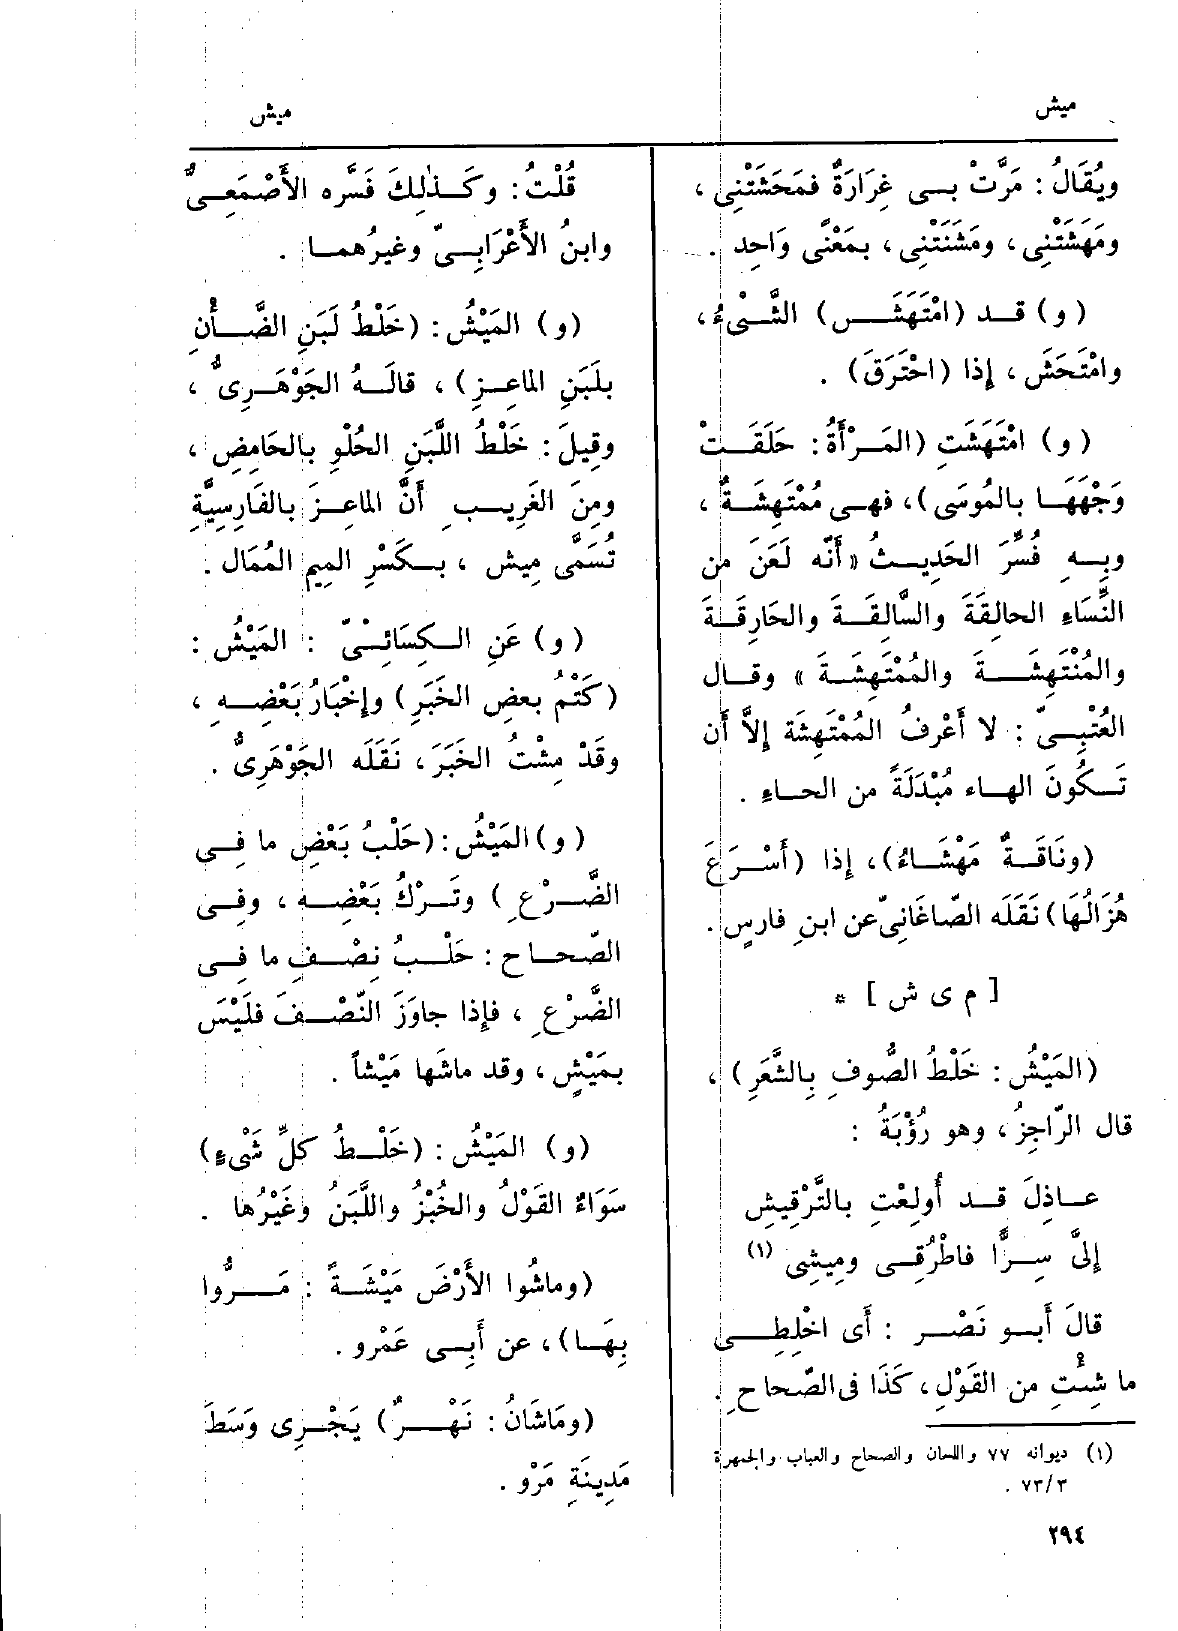 ميش
ميش
ويُقَالُ : مَرَّتْ بى غِرَارَةٌ فمَحَشَتْنِى ،
ومَهَشَتْنِى ، ومَشَنَتْنِى ، بمَعْنًى وَاحِد .
( و ) قد ( امْتَهَشَ ) الشَّىْءُ ،
وامْتَحَشَ ، إذا ( احْتَرَقَ ) .
( و ) امْتَهَشَتِ ( المَرْأَةُ : حَلَقَتْ
وَجْهَهَا بالمُوسَى ) ، فهى مُمْتَهِشَةٌ ،
وبِهِ فُسِّرَ الحَدِيثُ « أَنَّه لَعَنَ من
النِّسَاءِ الحالِقَةَ والسَّالِقَةَ والحَارِقَةَ
والمُنْتَهِشَةَ والمُمْتَهِشَةَ » وقال
العُتْبِىّ : لا أَعْرِفُ المُمْتَهِشَة إلاَّ أَن
تَكُونَ الهاء مُبْدَلَةً من الحاءِ .
( ونَاقَةٌ مَهْشَاءُ ) ، إذا ( أَسْرَعَ
هُزَالُهَا ) نَقَلَه الصّاغَانِىّ عن ابنِ فارسٍ .
[ م ى ش ] *
( المَيْشُ : خَلْطُ الصُّوفِ بِالشَّعَرِ ) ،
قال الرّاجِزُ ، وهو رُؤْبَةُ :
عاذِلَ قد أُولِعْتِ بالتَّرْقِيشِ
إلىَّ سِرًّا فاطْرُقِى ومِيشِى (١)
قالَ أَبو نَصْر : أَى اخْلِطِى
ما شِئْتِ من القَوْلِ ، كَذَا فى الصّحاحِ .
(١) ديوانه ٧٧ واللسان والصحاح والعباب والجمهرة
٧٣/٣ .
٢٩٤
قُلْتُ : وكَذٰلِكَ فَسَّره الأَصْمَعِىُّ
وابنُ الأَعْرَابِىّ وغيرُهما .
( و ) المَيْشُ : ( خَلْطُ لَبَنِ الضَّأْنِ
بلَبَنِ الماعِزِ ) ، قالَهُ الجَوْهَرِىُّ ،
وقِيلَ : خَلْطُ اللَّبَنِ الحُلْوِ بالحَامِضِ ،
ومِنَ الغَرِيبِ أَنَّ الماعِزَ بالفَارِسِيَّةِ
تُسَمَّى مِيش ، بكَسْرِ المِيمِ المُمَال .
( و ) عَنِ الكِسَائِىّ : المَيْشُ :
( كَتْمُ بعضِ الخَبَرِ ) وإخْبَارُ بَعْضِهِ ،
وقَدْ مِشْتُ الخَبَرَ ، نَقَلَه الجَوْهَرِىُّ .
( و ) المَيْشُ : ( حَلْبُ بَعْضِ ما فِى
الضَّرْعِ ) وتَرْكُ بَعْضِهِ ، وفِى
الصّحاحِ : حَلْبُ نِصْفِ ما فِى
الضَّرْعِ ، فإِذا جاوَزَ النِّصْفَ فلَيْسَ
بمَيْشٍ ، وقد ماشَها مَيْشاً .
( و ) المَيْشُ : ( خَلْطُ كلِّ شَىْءٍ )
سَوَاءٌ القَوْلُ والخُبْزُ واللَّبَنُ وغَيْرُها .
( وماشُوا الأَرْضَ مَيْشَةً : مَرُّوا
بِهَا ) ، عن أَبِى عَمْرو .
( ومَاشَانُ : نَهْرٌ ) يَجْرِى وَسَطَ
مَدِينَةِ مَرْو .